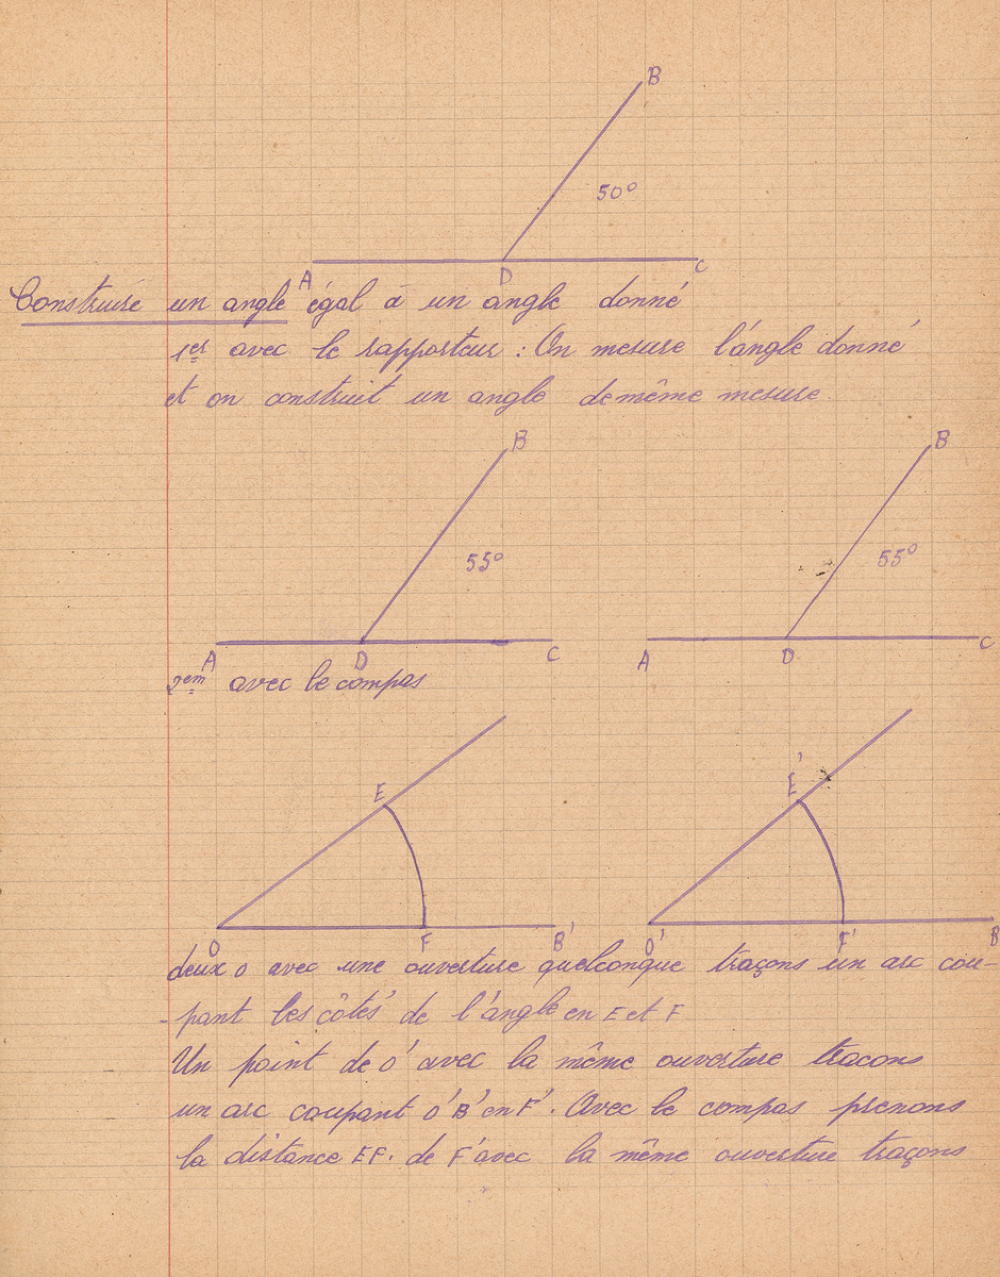 B
50°
A D C
Construire un angle égal à un angle donné
1er avec le rapporteur : On mesure l'angle donné
et on construit un angle de même mesure.
B B
55° 55°
A D C A D C
2em avec le compas
E E'
O F B' O' F' B
deux o avec une ouverture quelconque traçons un arc cou-
-pant les côtés de l'angle en E et F
Un point de o' avec la même ouverture tracons
un arc coupant o'B' en F'. Avec le compas prenons
la distance EF. de F' avec la même ouverture traçons